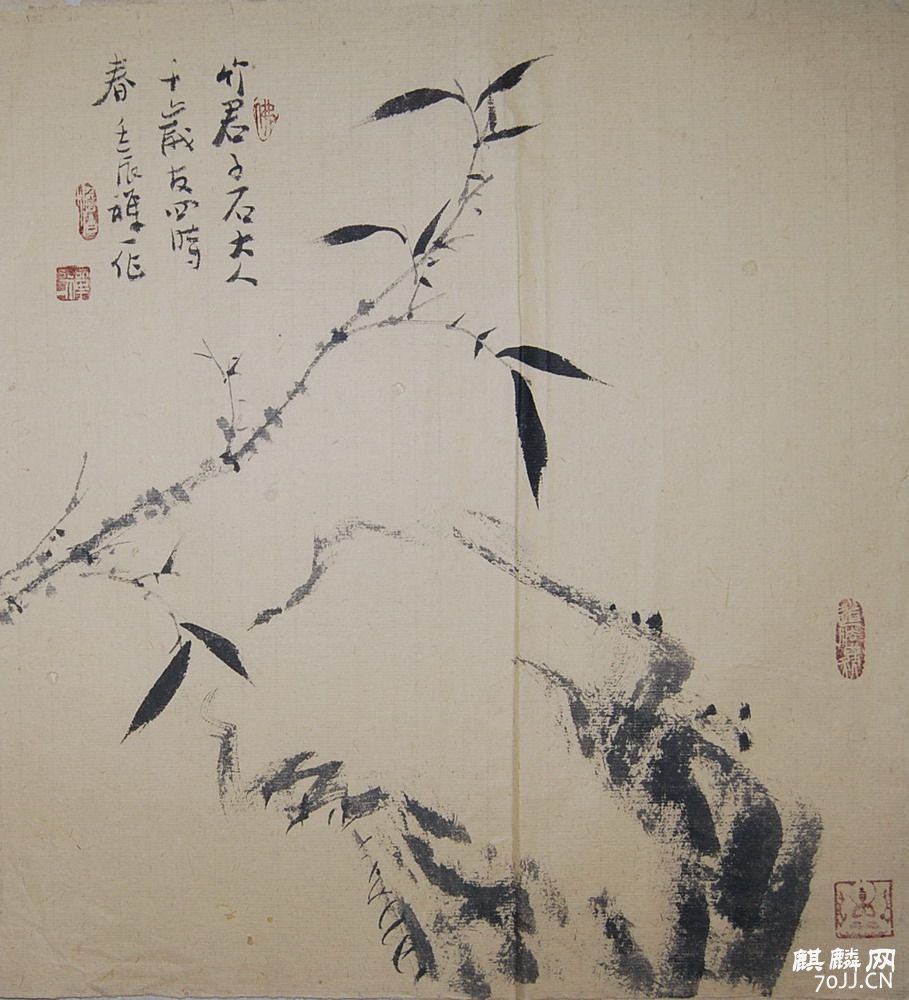 竹君子石大人
千歲友四時
春 壬辰禪一作
佛
麒麟网
70JJ.CN